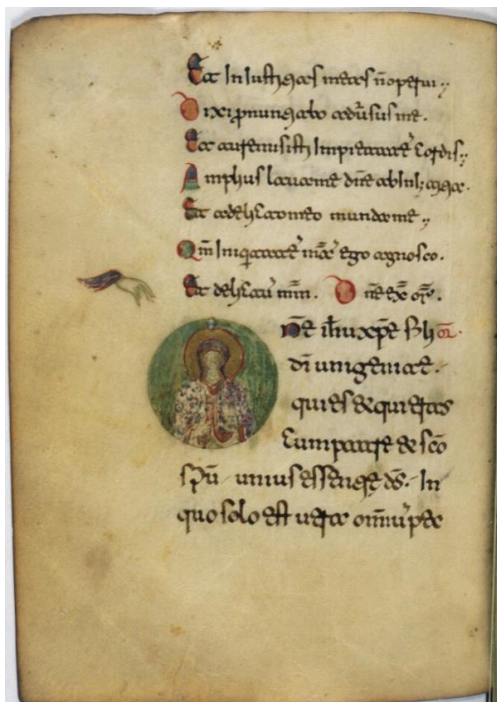 Et Iniustitias meas n̄ operui
Dixi ꝓnuntiabo aduˉsus me.
Et tu remisisti Impietatē cordis
Amplius laua me dn̄e ab
Et adelicto meo munda me
Qm̄ Iniquitatē meā ego agnosco.
Et delictū mm̄. Dn̄e ex̄ or̄.
Dn̄e ih̄u xp̄e fili or̄
dī unigenite.
qui es & qui eras
Cum patre & sc̄o
sp̄u unius essentie ds̄. In
quo solo est uera om̄iu pec